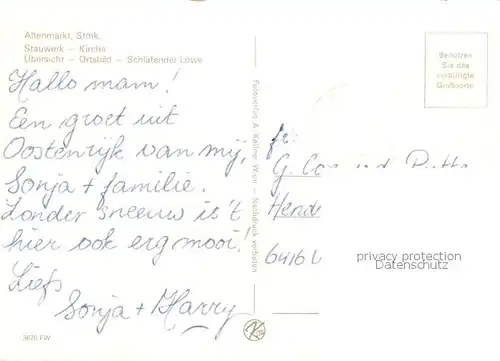 Altenmarkt, Stmk.
Stauwerk – Kirche
Übersicht – Ortsbild – Schlafender Löwe
Hallo mam!
Een groet uit
Oostenrijk van mij,
Sonja + familie.
Zonder sneeuw is 't
hier ook erg mooi!
Liefs
Sonja + Harry
3670 FW
Fotoverlag A. Kellner, Wien – Nachdruck verboten
Benützen
Sie das
verbilligte
fr:
G.
6416
privacy protection
Datenschutz